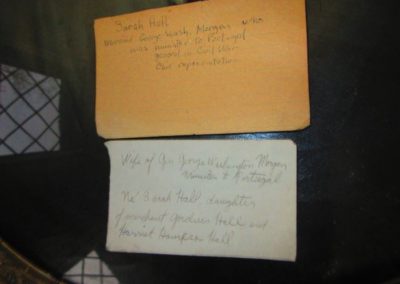 Sarah Hall
married George Wash. Morgan who
was minister to Portugal
general in Civil War
Wife of Gen George Washington Morgan
Minister to Portugal
Neé Sarah Hall daughter
of merchant Gardner Hall and
Harriet Hall